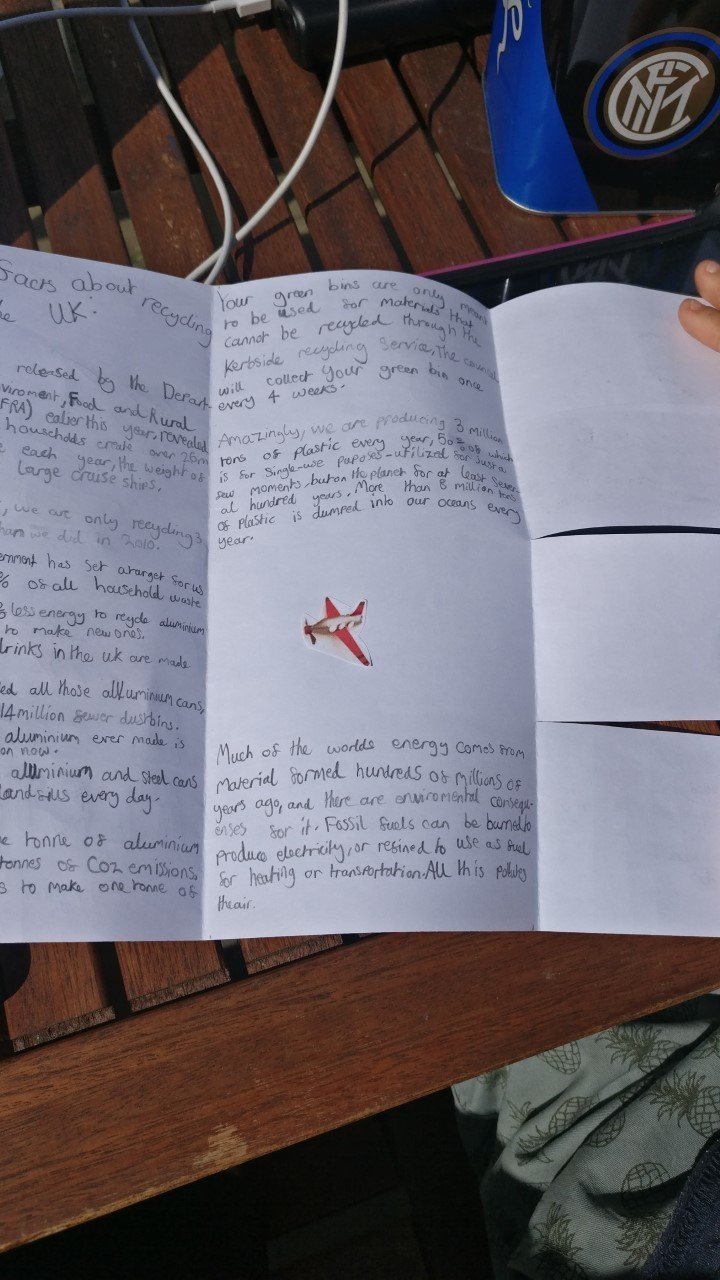 Facts about recycling
he UK:
released by the Depart-
viroment, Food and Rural
FRA) ealier this year, revealed
households create over 26m
e each year, the weight of
large cruise ships.
, we are only recycling 3
than we did in 2010.
ernment has set a target for us
% of all household waste
% less energy to recycle aluminium
to make new ones.
drinks in the uk are made
ed all those alluminium cans,
14 million fewer dustbins.
aluminium ever made is
on now.
alluminium and steel cans
landfills every day.
e tonne of aluminium
tonnes of Co2 emissions.
s to make one tonne of
Your green bins are only meant
to be used for materials that
cannot be recycled through the
Kerbside recycling Service, The council
will collect your green bin once
every 4 weeks.
Amazingly, we are producing 3 million
tons of plastic every year, 50% of which
is for single-use puposes - utilized for just a
few moments, but on the planet for at least sever-
al hundred years. More than 8 million tons
of plastic is dumped into our oceans every
year.
Much of the worlds energy comes from
material formed hundreds of millions of
years ago, and there are enviromental consequ-
enses for it. Fossil fuels can be burned to
produce electricity, or refined to use as fuel
for heating or transportation. All this pollutes
the air.